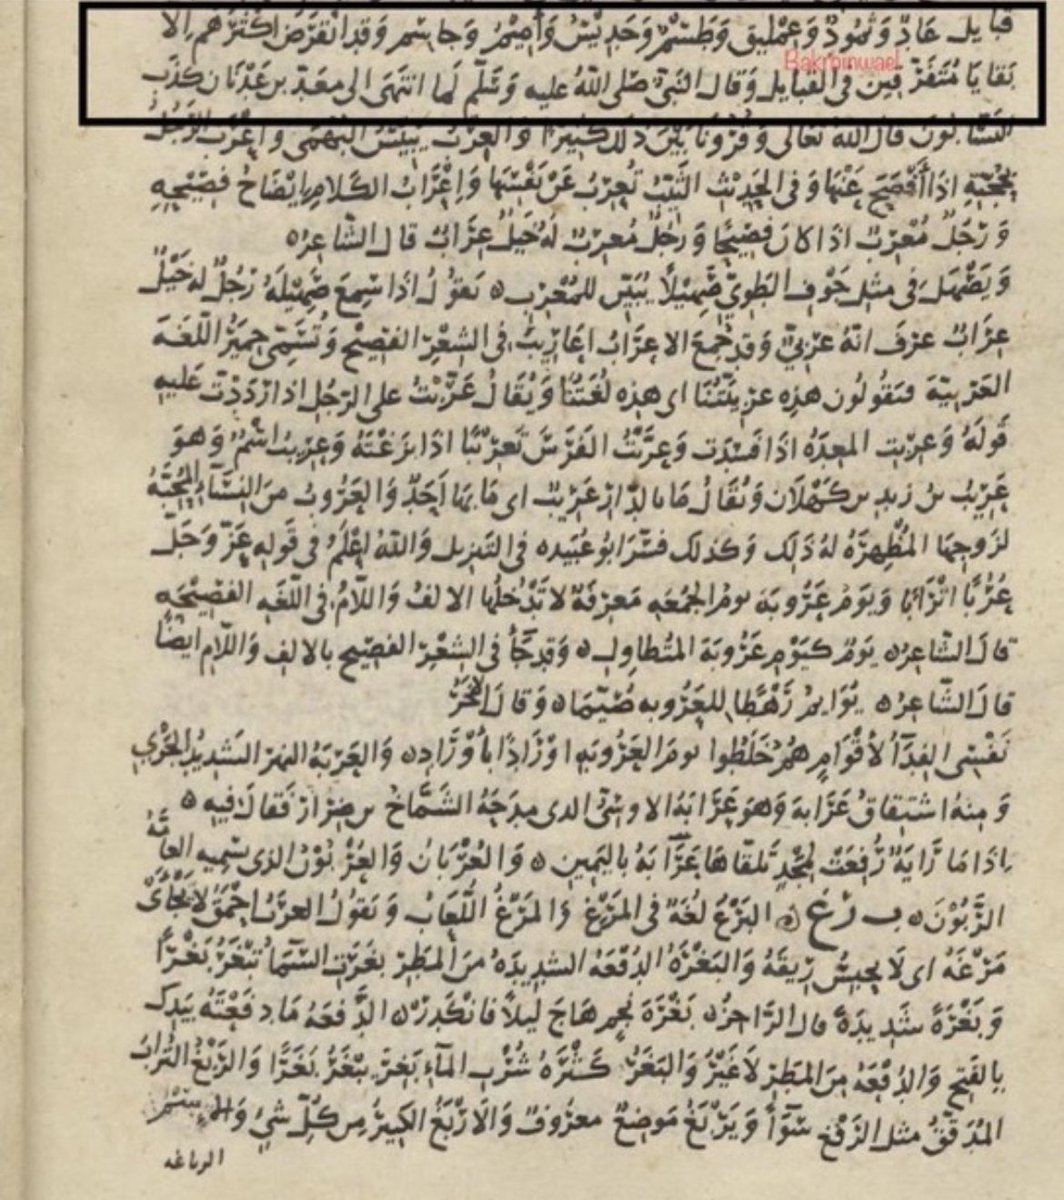 قبايل عَادٌ وَثَمُودُ وَعِمْلِيق وَطَسْمٌ وَجَدِيْسُ وَأمِيْمُ وَجاسِم وَقدِ انْقَرَضَ اَكْثَرُهُم اِلّا
Bakrbinwael
بَقايَا مُتَفَرِّقين في القَبايل وَقال النَبيّ صَلى اللهُ عليه وَسَلّم لَما انتَهَى الى معَدّ بن عَدْنَان كذَب
النسّابونَ قال اللهُ تعَالى وَقُرُونًا بَيْنَ ذَلكَ كَثِيرًا وَالعِرْبُ يَبِيْسُ البُهْمَى وَاَعْرَبَ الرَّجُلُ
بحُجَّتِهِ اذَا أفصَحَ عَنْهَا وَفي الحَدِيْثِ الثَيّبُ تُعرِبُ عَنْ نَفْسِهَا وَاِعْرَابُ الكَلامِ اِيْضَاحُ فصِيْحِهِ
وَرَجُلٌ مُعْرِبٌ اذَا كانَ فصِيْحًا وَرَجُلٌ مُعرِبٌ لهُ خَيْلٌ عِرَابٌ قال الشّاعِرُ
وَيَصْهلُ في مثِل جَوْفِ الطَّوِيّ صَهِيْلًا يُبَيّن للمُعْرِبِ تَقوْلُ اذَا سَمِعَ صَهِيْلَهُ رَجُلٌ لهُ خَيْلٌ
عِرَابٌ عرَفَ انّهُ عرَبيّ وَقد جُمعَ الاعرَابُ اعَارِيْبَ في الشِعْرِ الفصِيْحِ وَتُسَمّى حِمْيَرُ اللّغَةَ
العَرَبيَّةَ فيَقُولُون هذِهِ عرَبيَّتُنَا اى هذِه لُغَتُنَا وَيُقَالُ عَرَّبْتُ على الرّجُل اذا رَدَدْتَ عليهِ
قَولَهُ وَعرِبَتِ المعِدَةُ اذَا فَسَدَت وَعرَّبْتُ الفَرَسَ تَعرِيْبًا اذَا بَزَغْتَهُ وَعَرِيْبُ اسْمٌ وَهوَ
عَرِيْبُ بن زيدِ بن كَهْلَان وَيُقَالُ مَا بالدّارِ عَرِيْبٌ اى مَا بهَا اَحَدٌ وَالعَرُوبُ منَ النِسَاءِ المُحِبَّةُ
لزَوجِهَا المُظْهِرَةُ لهُ ذَلِكَ وَكذلك فسّرَ ابُو عُبَيده في التَنزِيل وَاللهُ اعْلَمُ في قَولهِ عَزّ وَجَلّ
عُرُبًا اَتْرَابًا وَيَومُ عَرُوبَة يومُ الجُمُعَهِ مَعرِفَةٌ لا تَدْخُلُها الالفُ وَاللّامُ في اللّغَهِ الفصِيْحَهِ
قالَ الشّاعِرُ يَومٌ كيَوْمِ عَرُوبَةَ المُتَطاوِلِ وَقد جَآءَ في الشِعْرِ الفصِيْحِ بالالفِ وَاللّامِ ايضًا
قالَ الشّاعِرُ يُوَايمُ رَهْطًا للعَرُوبهِ صُيّمَا وَقالَ الاخَرُ
نَفْسِى الفِدَآءُ لأقْوَامٍ هُمُ خَلَطُوا يومَ العَرُوبَهِ اَوْرَادًا بأوْرَادِ وَالعَرَبَةُ النهرُ الشدِيدُ الجَرْي
وَمنهُ اشتِقاقُ عَرَابةَ وَهوَ عَرَابَةُ الاوسِىّ الذى مدَحَهُ الشَمَّاخُ بن ضِرَارٍ فَقالَ فِيهِ
اِذَا مَا رَايَةٌ رُفِعَتْ لمَجْدٍ تَلَقّاهَا عَرَابَةُ باليَمينِ وَالعُرْبَانُ وَالعُرْبُوْنُ الذى يسَمِيه العَامّهُ
الرَّبُوْنَ ب ر غ البَرْغُ لُغَهٌ في المَرْغِ وَالمَرْغُ اللُّعَابُ وَتَقوْلُ العرَبُ احْمَقُ لا يَجْأى
مَرْغَهُ اى لَا يحبِسُ رِيقَهُ وَالبَغْرَةُ الدُفْعَهُ الشدِيدَهُ منَ المَطَرِ بَغَرَتِ السّمَآءُ تَبْغَرُ بَغْرًا
وَبَغْرَةً شدِيدَةً قالَ الرّاجزُ بَغْرَةَ نجمٍ هَاجَ ليلًا فانْكَدَرْ الدَّفعَهُ مَا دفَعْتَهُ بيَدِكَ
بالفَتحِ وَالدُفْعَهُ مِنَ المَطَرِ لا غَيْرُ وَالبَغَرُ كَثْرَةُ شُرْبِ المآءِ بَغِرَ يَبْغَرُ بَغَرًا وَالرَّبْغُ التُرابُ
المُدَقّقُ مثلُ الرَّفْغِ سَوَآءً وَيَرْبَغُ مَوضِعٌ معرُوفٌ وَالاَرْبَغُ الكَثِيرُ مِن كُلّ شيءٍ وَالاسْمُ
الرباغه